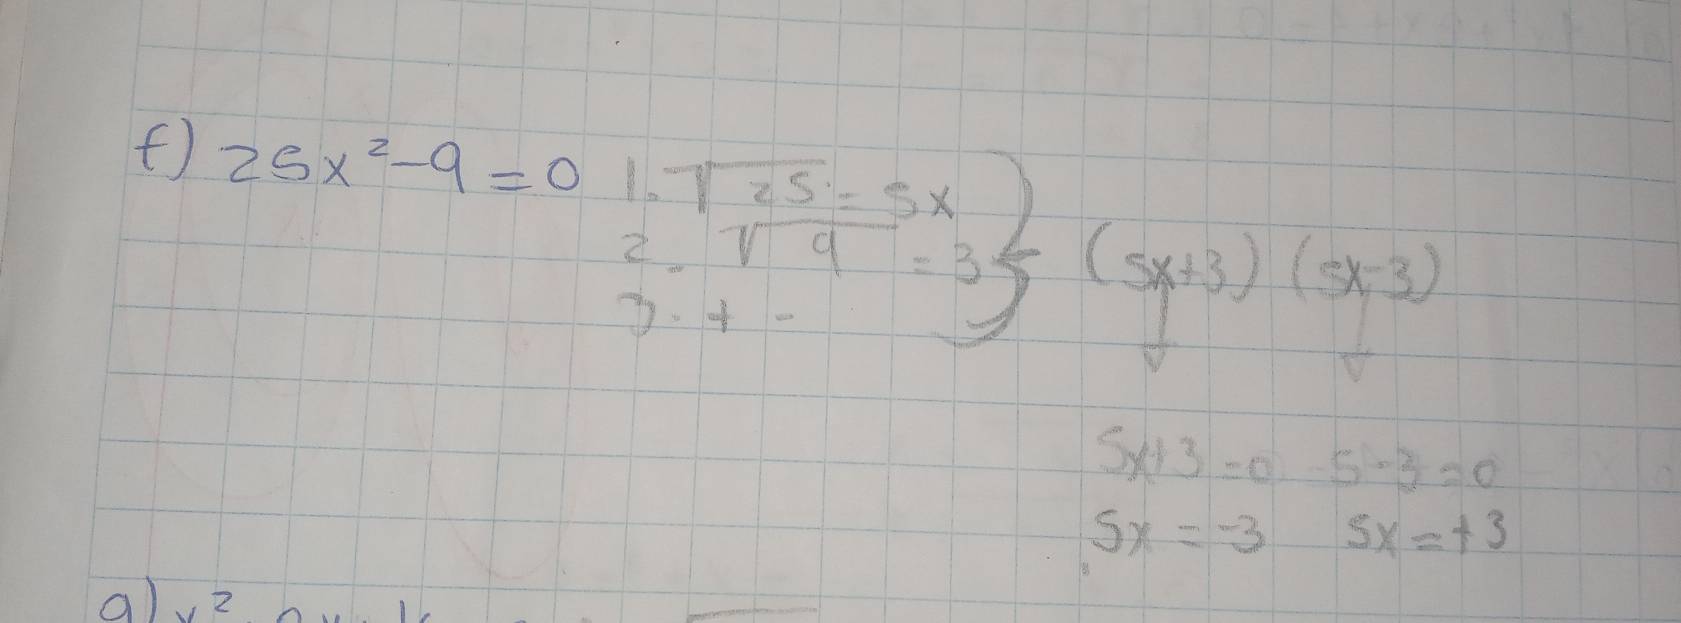 f) 25x²-9=0
1. √25 = 5x
2. √9 = 3
3. + -
(5x+3) (5x-3)
5x+3=0 5-3=0
5x = -3 5x=+3
g) x²